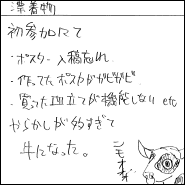 漂着物
初参加にて
・ポスター入稿忘れ
・作ってたポスカがガビガビ
・買った皿立てが機能しない etc
やらかしが多すぎて
牛になった。
ンモオォ